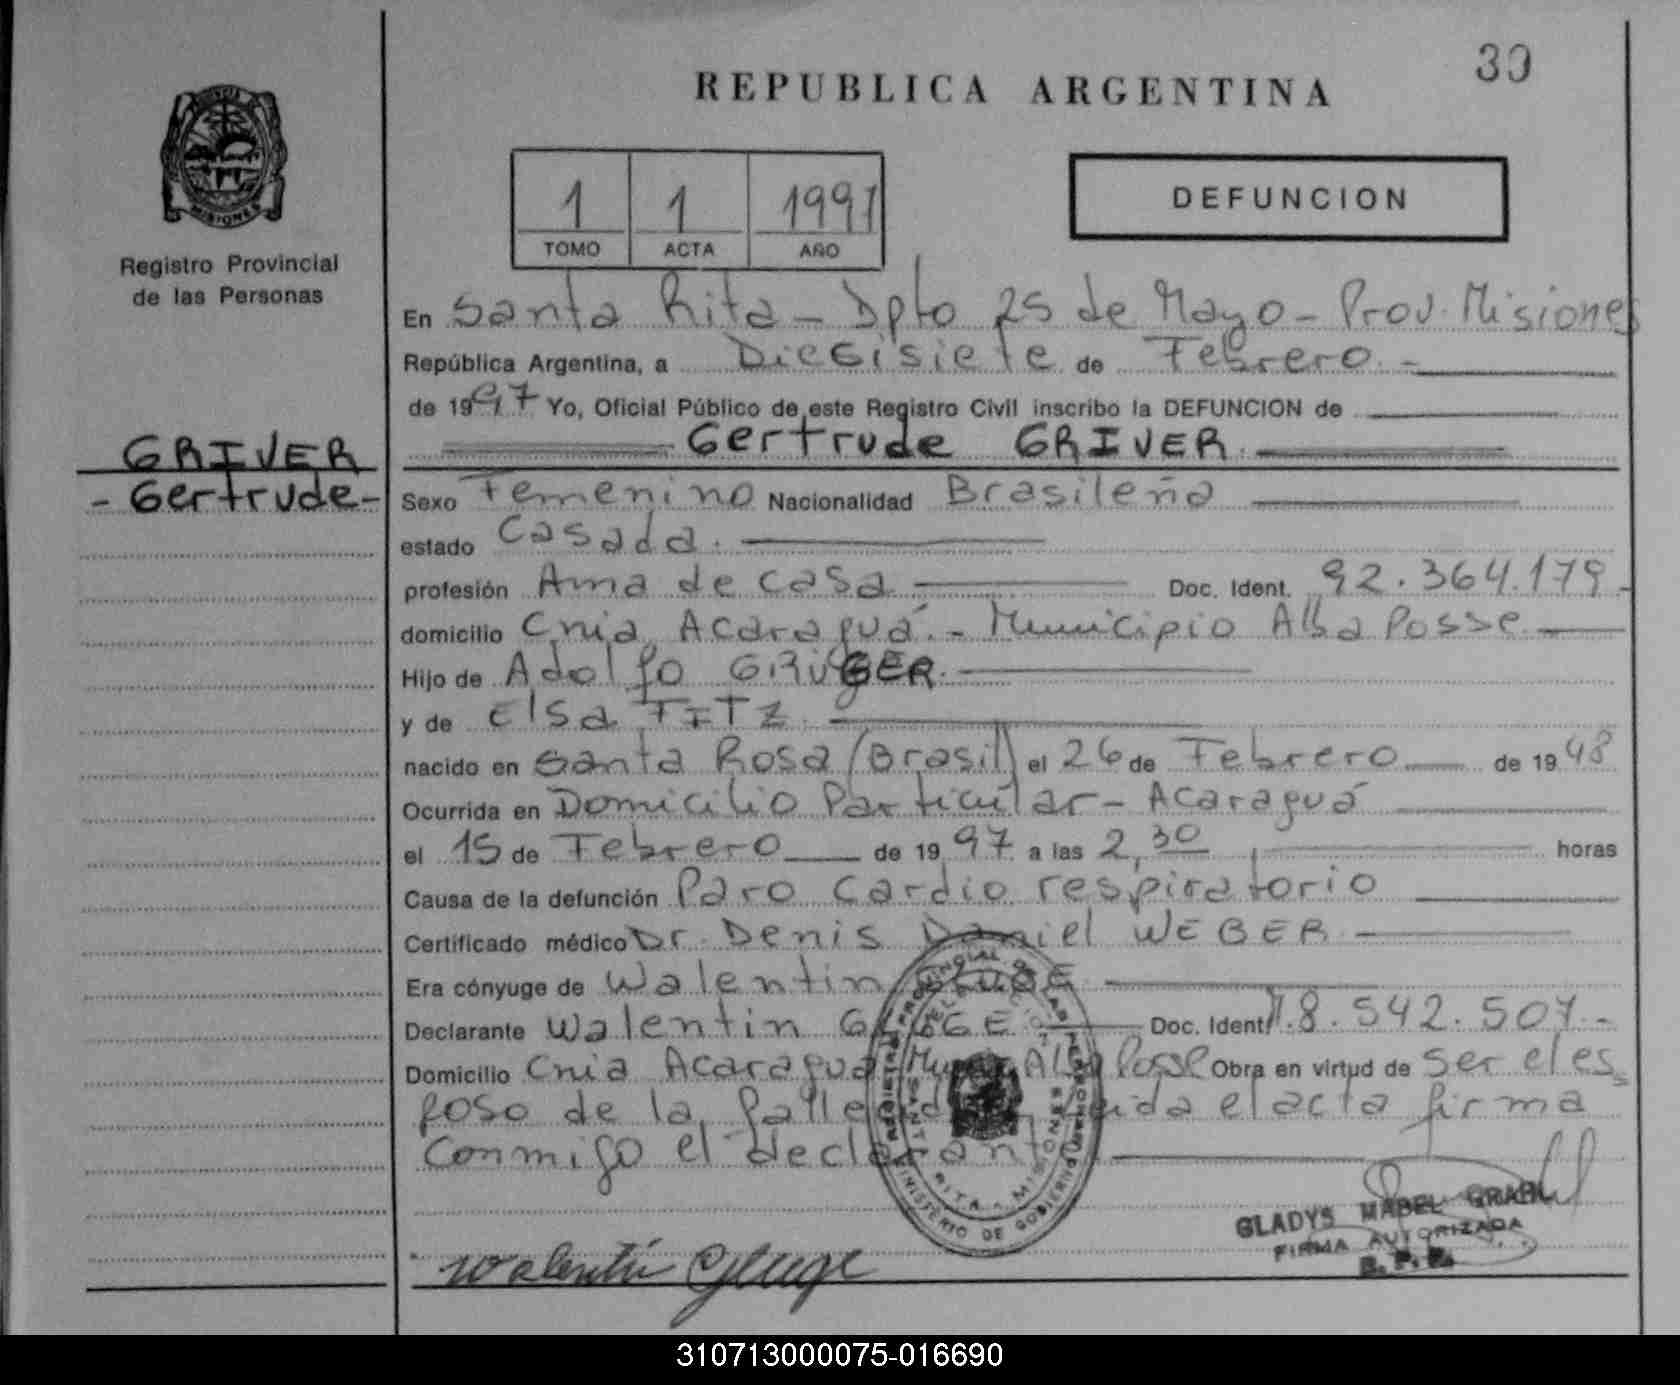 30
REPUBLICA ARGENTINA
PROVINCIA DE
MISIONES
Registro Provincial
de las Personas
1 1 1991
TOMO ACTA AÑO
DEFUNCION
En Santa Rita - Dpto 25 de Mayo - Prov. Misiones
República Argentina, a Diesisiete de Febrero. -
de 1997 Yo, Oficial Público de este Registro Civil inscribo la DEFUNCION de
Gertrude GRIVER
GRIVER
- Gertrude -
Sexo Femenino Nacionalidad Brasileña
estado Casada.
profesión Ama de casa Doc. Ident. 92.364.179 -
domicilio Cnia Acaraguá. - Municipio Alba Posse
Hijo de Adolfo
y de elsa TITZ
nacido en Santa Rosa (Brasil) el 26 de Febrero de 1948
Ocurrida en Domicilio Particular - Acaraguá
el 15 de Febrero de 1997 a las 2,30 horas
Causa de la defunción Paro cardio respiratorio
Certificado médico Dr. Denis Daniel WEBER
Era cónyuge de Walentin
Declarante Walentin Doc. Ident. 18.542.507. -
Domicilio Cnia Acaragua Alba Posse Obra en virtud de ser el es
poso de la el acta firma
conmigo el declarante
MINISTERIO DE GOBIERNO
SANTA RITA - MISIONES
Walentin Gluge
GLADYS MABEL GRAHL
FIRMA AUTORIZADA
R. P. P.
310713000075-016690